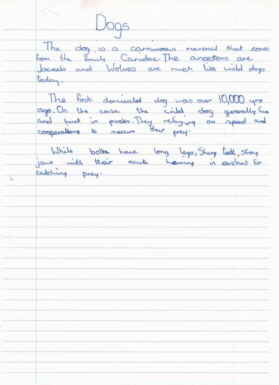 Dogs
The dog is a carnivorous mammal that comes
from the family Canidae. The ancestors are
Jackals and Wolves are much like wild dogs
today.
The first domicated dog was over 10,000 yrs
ago. On the case the wild dog generally live
and hunt in packs. They relying on speed and
cooperations to secure their prey.
While both have long legs, Sharp teeth, strong
jaws with their acute hearing is essential for
catching prey.